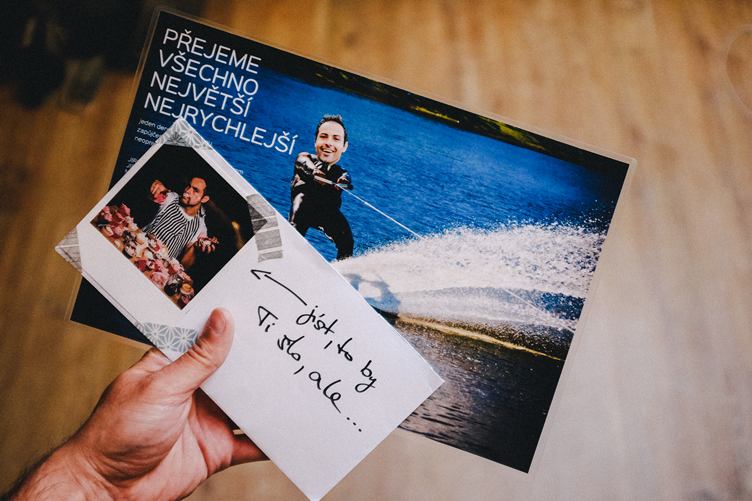 PŘEJEME
VŠECHNO
NEJVĚTŠÍ
NEJRYCHLEJŠÍ
jeden den
zapůjče
jíst, to by
Ti šlo, ale...